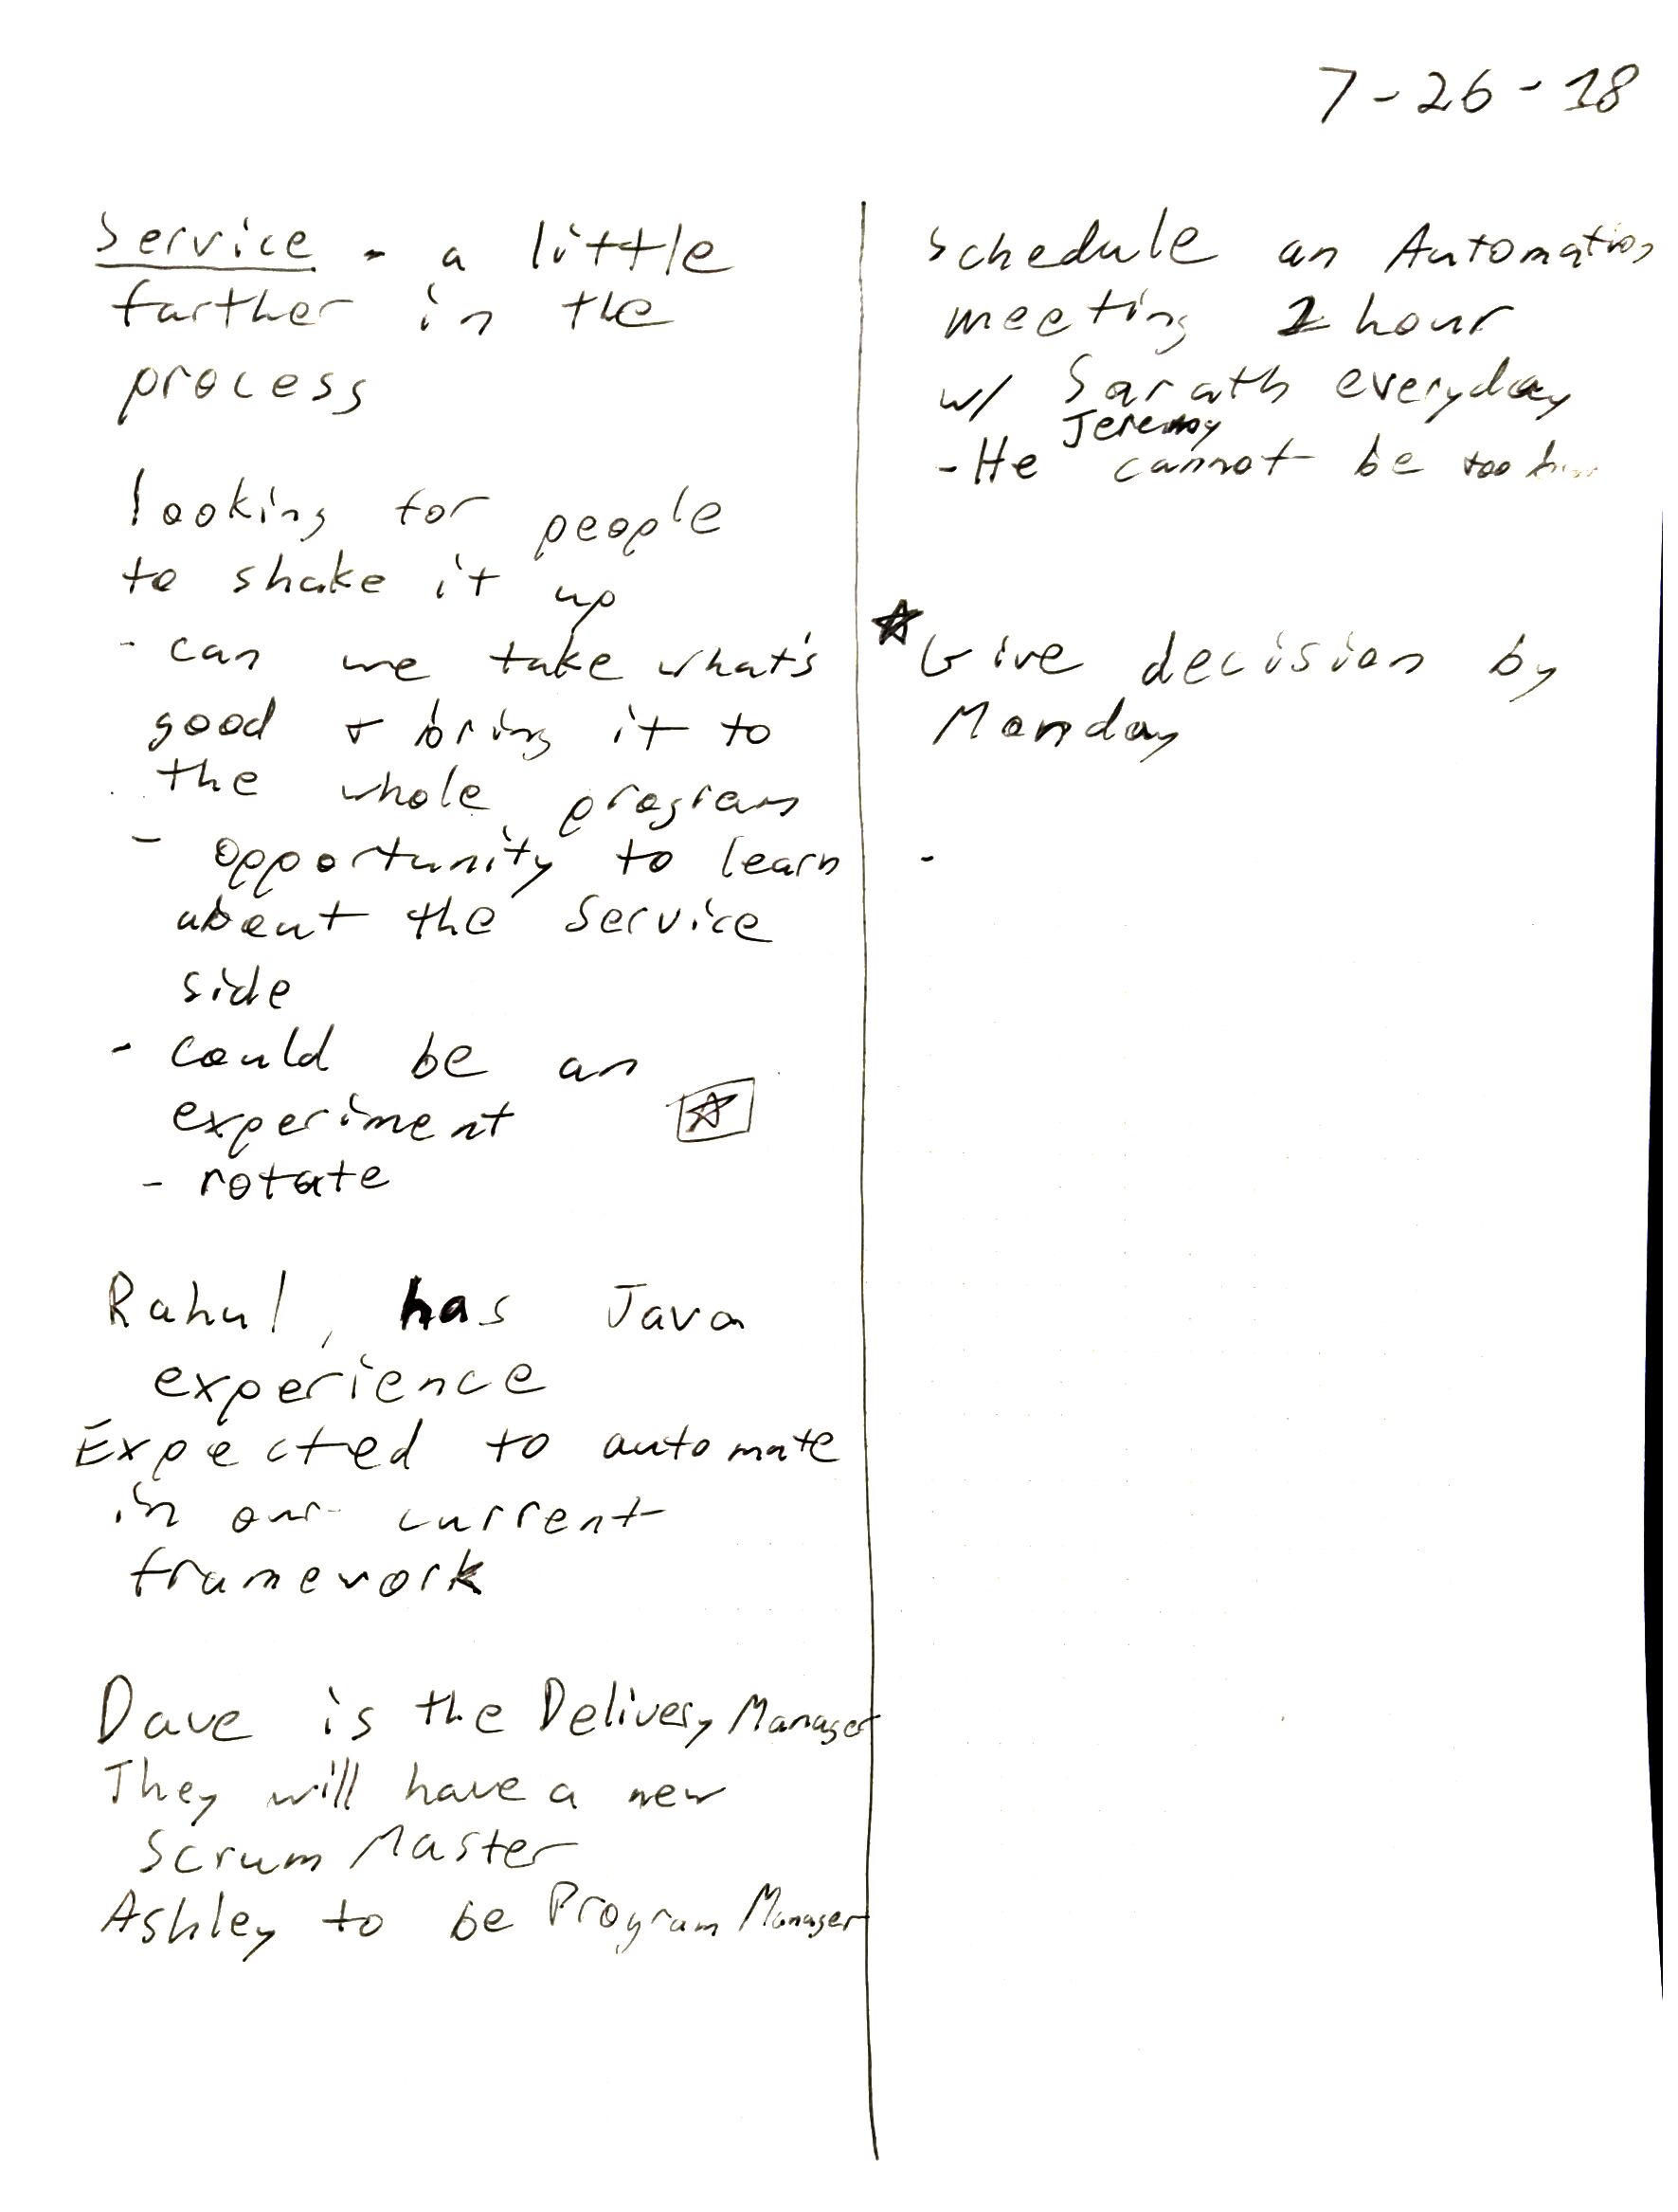 7-26-18
Service - a little
farther in the
process
looking for people
to shake it up
- can we take what's
good + bring it to
the whole program
- opportunity to learn
about the service
side
- could be an
experiment
- rotate
Rahul, has Java
experience
Expected to automate
in our current
framework
Dave is the Delivery Manager
They will have a new
Scrum Master
Ashley to be Program Manager
schedule an Automation
meeting hour
w/ Sarath everyday
Jeremy
- He cannot be too
Give decision by
Monday
-